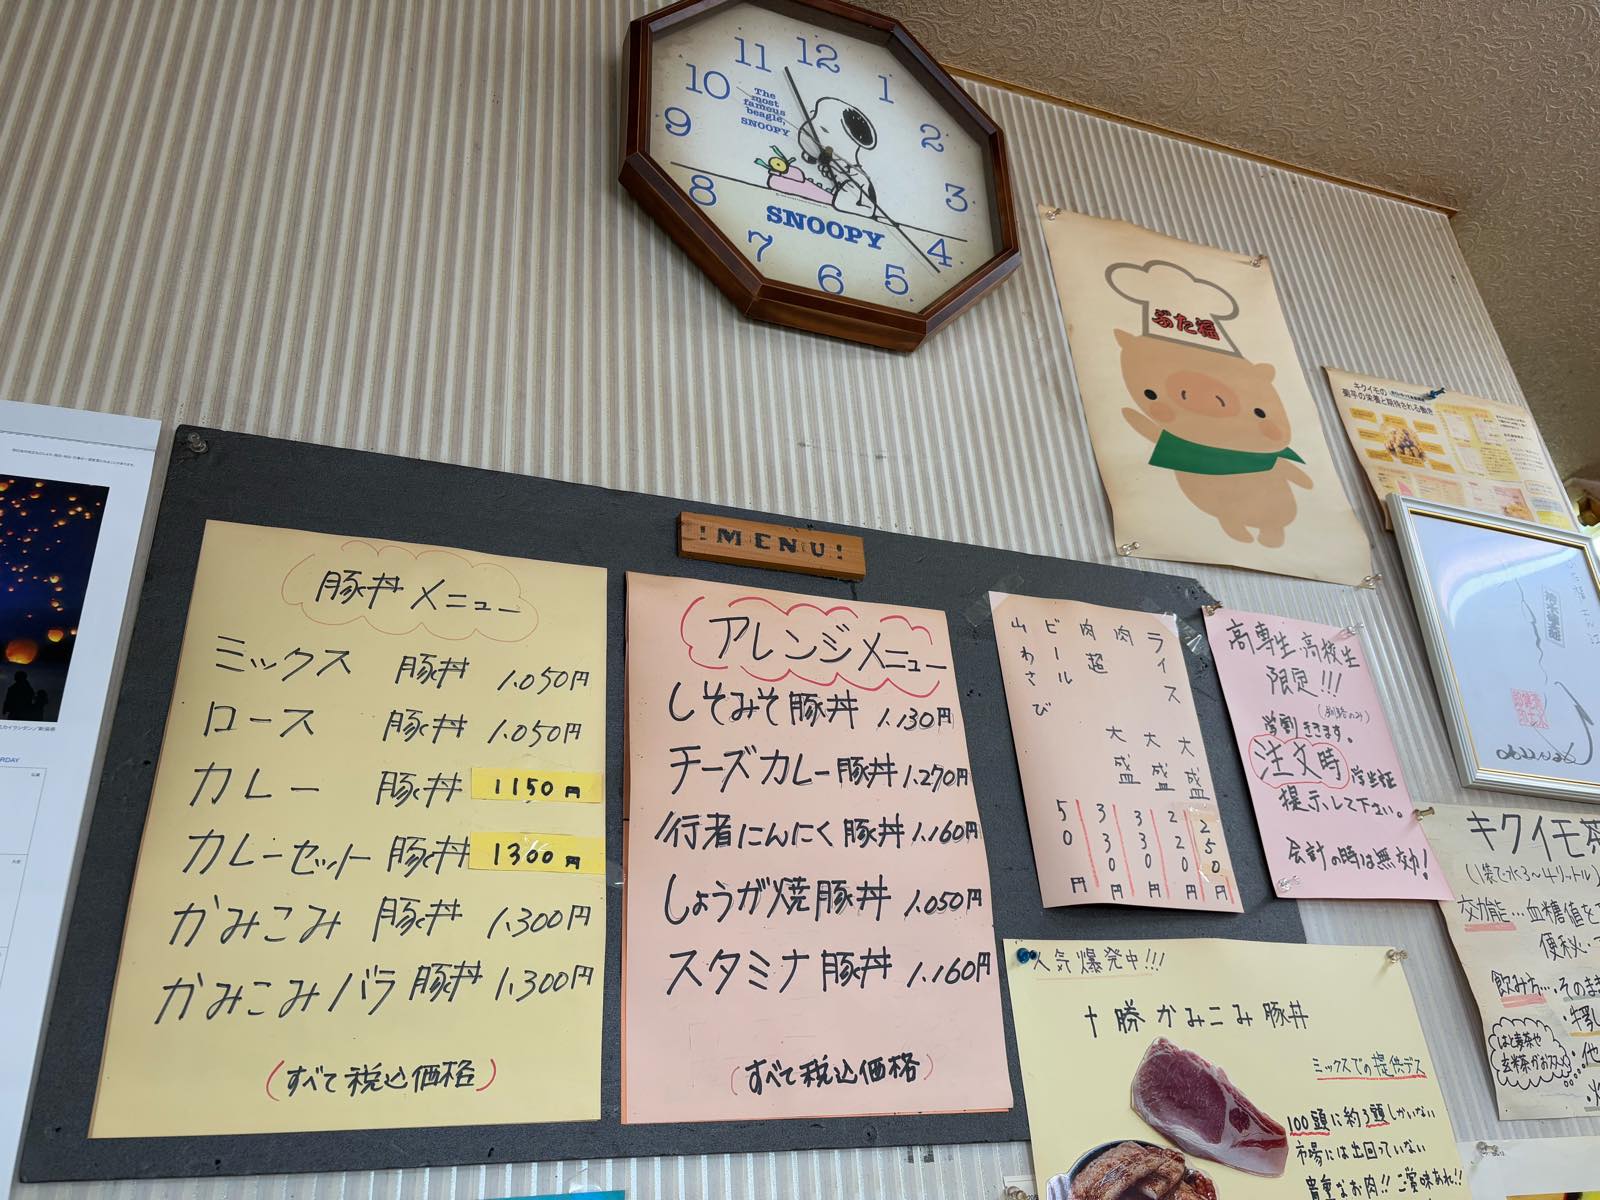 12
1
2
3
4
5
6
7
8
9
10
11
The
most
famous
beagle,
SNOOPY
SNOOPY
ぶた福
!MENU!
豚丼メニュー
ミックス 豚丼 1.050円
ロース 豚丼 1.050円
カレー 豚丼 1150円
カレーセット 豚丼 1300円
かみこみ 豚丼 1.300円
かみこみバラ 豚丼 1.300円
(すべて税込価格)
アレンジメニュー
しそみそ豚丼 1.130円
チーズカレー豚丼 1.270円
行者にんにく豚丼 1.160円
しょうが焼豚丼 1.050円
スタミナ豚丼 1.160円
(すべて税込価格)
ライス 大盛 250円
肉 大盛 220円
肉超 大盛 330円
ビール 330円
山わさび 50円
高専生、高校生
限定!!!
学割ききます。
注文時 学生証
提示して下さい。
会計の時は無効!
キクイモの
キクイモ茶
(1袋で水3〜4リットル)
効能…血糖値を
便秘・
飲み方…そのまま
はと麦茶や
玄米茶がおススメ
・他
人気爆発中!!!
十勝かみこみ豚丼
ミックスでの提供デス
100頭に約3頭しかいない
市場には出回っていない
貴重なお肉!!ご賞味あれ!!